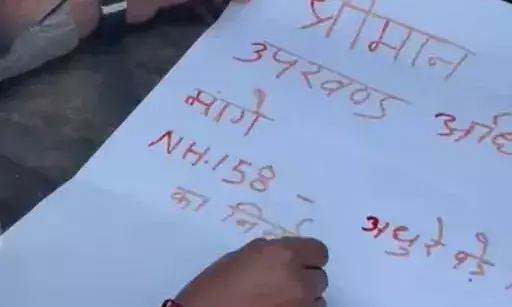 श्रीमान
उपखण्ड अधि
मांगे
NH.158 -
का नि अधुरे पडे